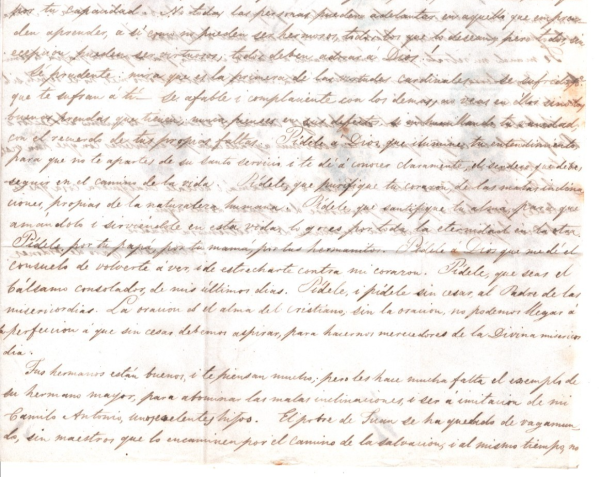 por tu capacidad. No todas las personas pueden adelantar en aquello que empren-
den aprender, así como no pueden ser hermosos, todos los que lo desean, pero todos, sin
escepcion, pueden ser virtuosos, todos deben adorar a Dios!
Sé prudente: mira que es la primera de las virtudes cardinales
que te sufran á tú se afable i complaciente con los demas,
buenas prendas que tienen, nunca pienses en sus defectos,
con el recuerdo de tus propias faltas. Pídele a Dios, que ilumine, tu entendimiento
para que no te apartes de su santo servicio i te dé á conocer claramente, el sendero que debes
seguir en el camino de la vida. Pídele, que purifique tu corazon de las malas inclina-
ciones, propias de la naturaleza humana. Pídele, que santifique tu alma, para que
amándolo i sirviéndole en esta vida, lo goces por toda la eternidad en la otra.
Pídele por tu papá, por tu mamá, por tus hermanitos. Pídele a Dios que me dé el
consuelo de volverte á ver, i de estrecharte contra mi corazon. Pídele, que seas el
bálsamo consolador, de mis últimos dias. Pídele, i pídele sin cesar, al Padre de las
misericordias. La oracion es el alma del cristiano, sin la oracion, no podemos llegar á
la perfeccion á que sin cesar debemos aspirar, para hacernos merecedores de la Divina misericor-
dia.
Tus hermanos están buenos, i te piensan mucho; pero les hace mucha falta el ejemplo de
su hermano mayor, para abominar las malas inclinaciones, i ser á imitacion de mi
Camilo Antonio, unos escelentes hijos. El pobre de Juan se ha quedado de vagamun-
do, sin maestros que lo encaminen por el camino de la salvacion, i al mismo tiempo, no